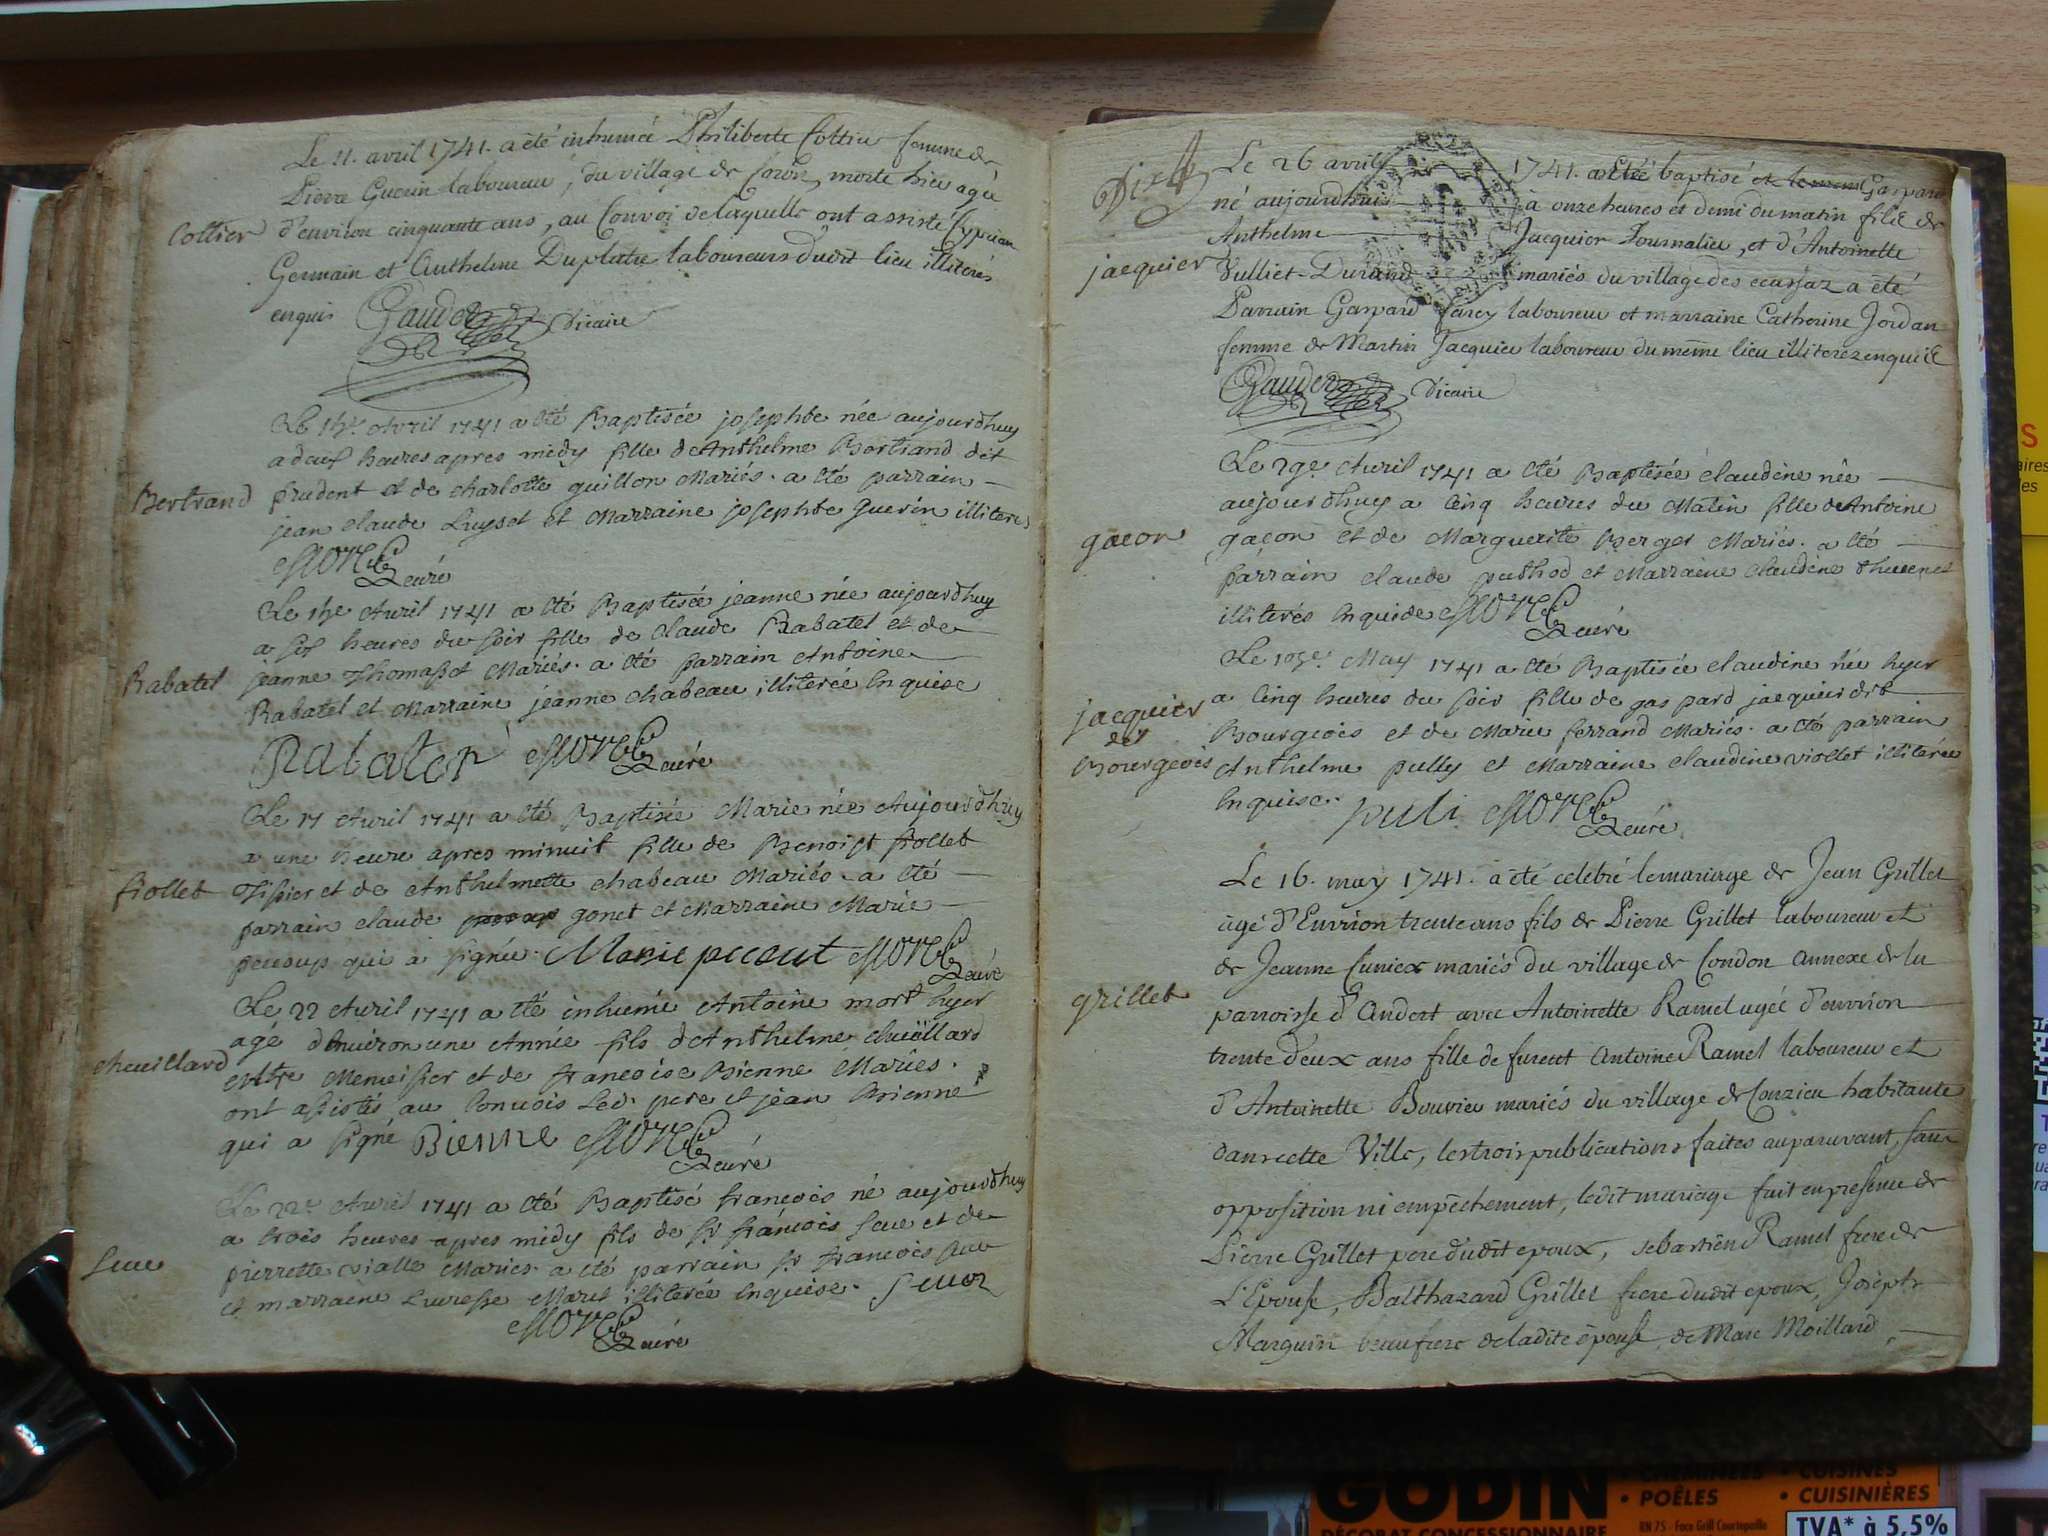 Le 11. avril 1741. a été inhumée Philiberte Cottier femme de
Pierre Guerin laboureur, du village de morte hier agée
Cottier
d'environ cinquante ans, au Convoi de laquelle ont assisté Cyprian
Germain et Anthelme Duplatre laboureurs dudit lieu illiterés
enquis Gaudet Vicaire
Le Avril 1741 a été Baptisée josephte née aujourdhuy
a deux heures apres midy fille de Anthelme Bertrand dit
Bertrand
prudent et de charlotte guillon Mariés. a été parrain
jean claude Luyset et Marraine josephte guerin illiteres
curé
Le Avril 1741 a été Baptisée jeanne née aujourdhuy
a six heures du soir fille de claude Rabatel et de
Rabatel
jeanne Thomasset Mariés. a été parrain Antoine
Rabatel et Marraine jeanne chabeau illiterée Enquise
Rabatel curé
Le 17 Avril 1741 a été Baptisée Marie née Aujourdhuy
a une heure apres minuit fille de Benoist fiollet
fiollet
Tissier et de Anthelmette chabeau Mariés. a été
parrain claude gonet et Marraine Marie
pecoup qui a signée. Marie pecout curé
Le 22 Avril 1741 a été inhumé Antoine mort hyer
agé d'Environ une Année fils d'Anthelme chuillard
cheuillard
Me Menuisier et de francoise Bienne Mariés.
ont assistés au Convois Led. pere et jean Brienne
qui a signé Bienne curé
Le 22e Avril 1741 a été Baptisé francois né aujourdhuy
a trois heures apres midy fils de Sr francois Seue et de
Seue
pierrette vialle Mariés a été parrain Sr francois Seue
et marraine Lucresse Maret illiterée Enquise.
curé
Le 26 avril 1741. a été baptisé et le nom Gaspard
né aujourdhui à onze heures et demi du matin fils de
jacquier
Anthelme Jacquier Journalier, et d'Antoinette
Vulliet-Durand mariés du village des ecassaz a été
Parrain Gaspard farcy laboureur et marraine Catherine Jordan
femme de Martin Jacquier laboureur du même lieu illiterez enquis
Gaudet Vicaire
Le 29e Avril 1741 a été Baptisée claudine née
aujourdhuy a Cinq heures du Matin fille de Antoine
gacon
gacon et de Marguerite Berger Mariés. a été
parrain claude puthod et Marraine claudine thevenet
illiterés Enquis curé
Le May 1741 a été Baptisée claudine née hyer
a Cinq heures du soir fille de gaspard jacquier dit
jacquier
dit
Bourgeois
Bourgeois et de Marie ferrand Mariés. a été parrain
Anthelme pully et Marraine claudine viollet illiterée
Enquise. puli curé
Le 16. may 1741. a été celebré le mariage de Jean Grillet
agé d'Environ trente ans fils de Pierre Grillet laboureur et
de Jeanne Cuniex mariés du village de Condon annexe de la
grillet
parroisse d'Andert avec Antoinette Ramel agée d'environ
trente d'eux ans fille de furent Antoine Ramel laboureur et
d'Antoinette Bouvier mariés du village de Conzieu habitante
dans cette Ville, les trois publications faites auparavant, sans
opposition ni empêchement, ledit mariage fait en presence de
Pierre Grillet pere dudit epoux, sebastien Ramel frere de
L'Epouse, Balthazard Grillet frere dudit epoux, Joseph
Marguin beaufrere de ladite épouse, de Marc Moillard,
GODIN
DÉCORAT CONCESSIONNAIRE
• CHEMINÉES • CUISINES
• POÊLES • CUISINIÈRES
TVA* à 5,5%